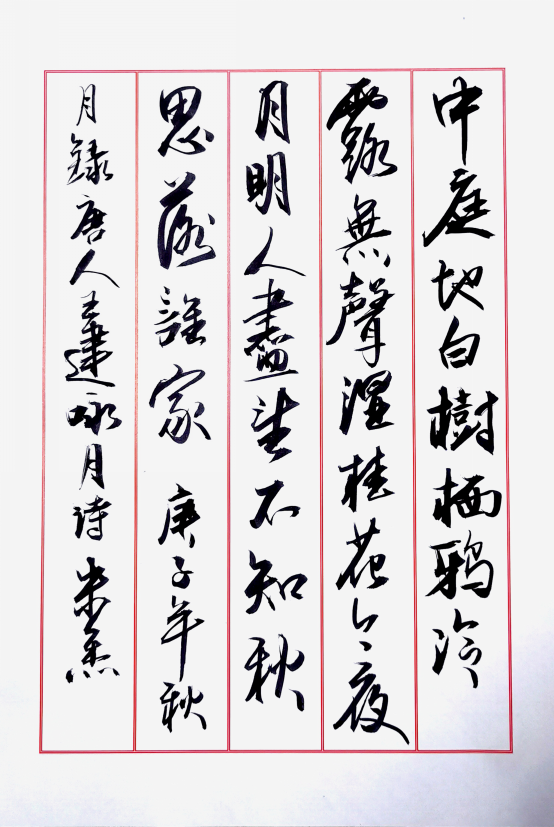 中庭地白樹栖鴉冷
露無聲濕桂花今夜
月明人盡望不知秋
思落誰家 庚子年秋
月錄唐人王建咏月詩 米